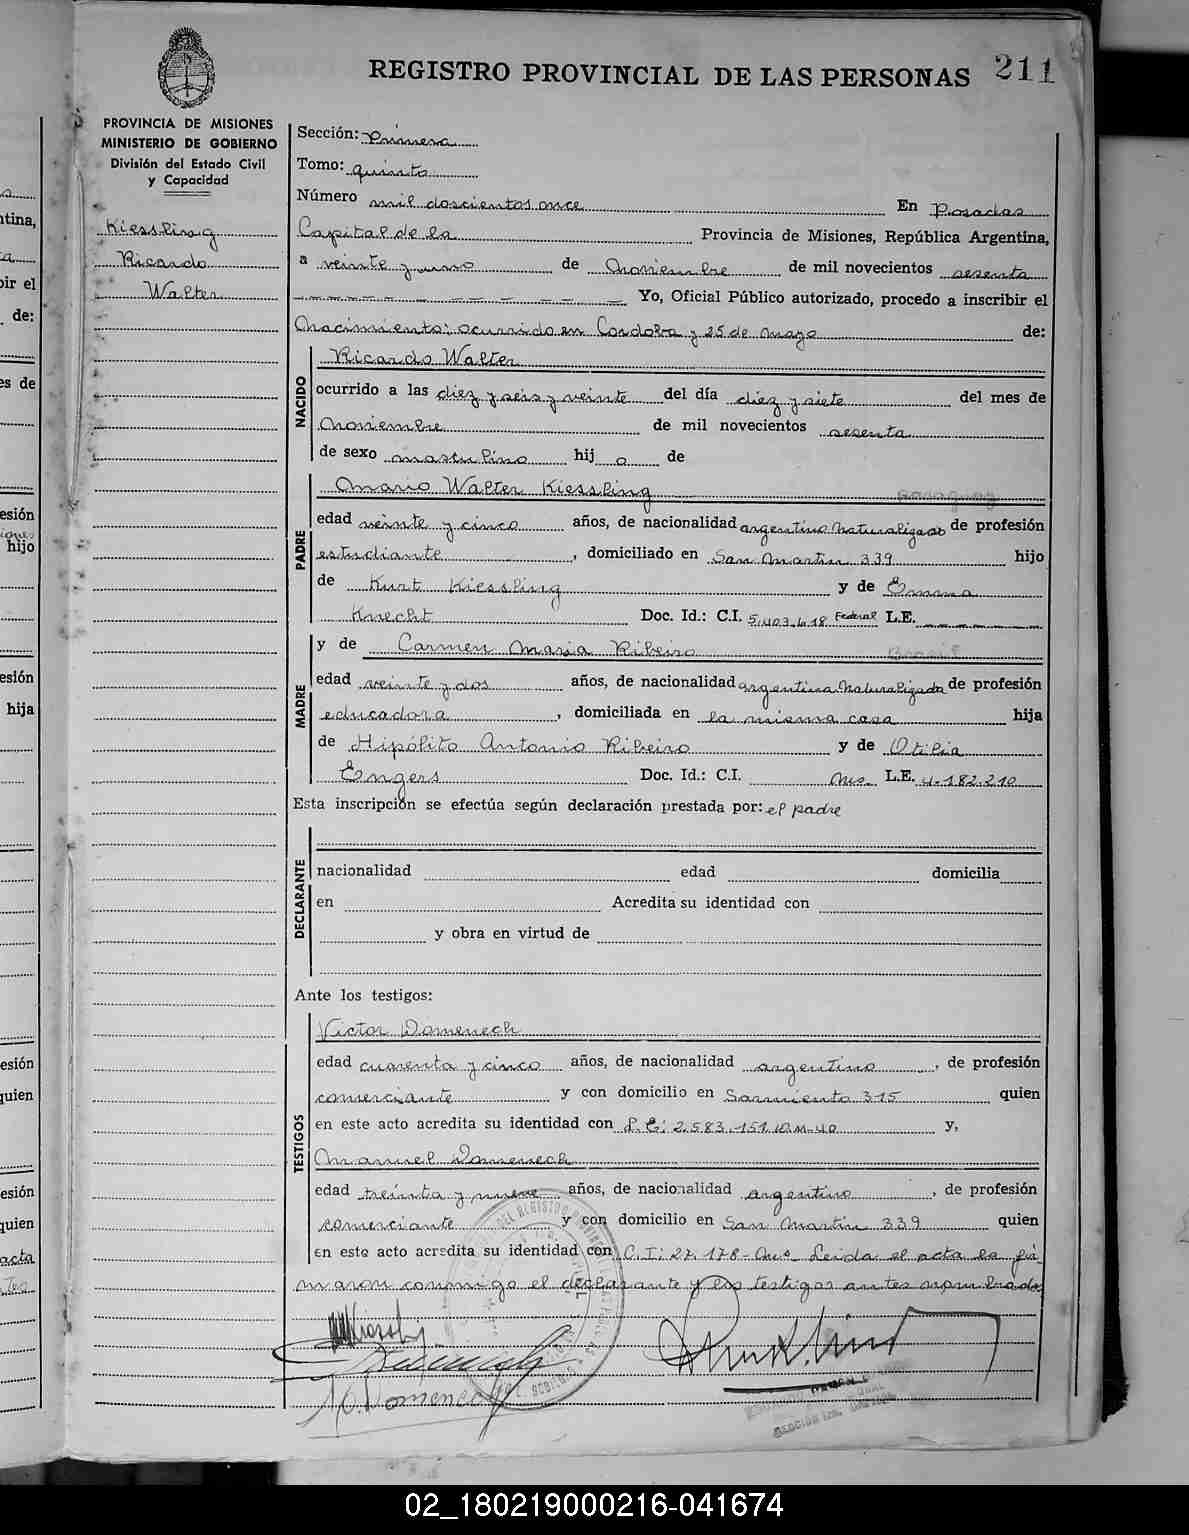 REGISTRO PROVINCIAL DE LAS PERSONAS 211
PROVINCIA DE MISIONES
MINISTERIO DE GOBIERNO
División del Estado Civil
y Capacidad
Kiessling
Ricardo
Walter
Sección: Primera
Tomo: quinto
Número mil doscientos once En Posadas
Capital de la Provincia de Misiones, República Argentina,
a veinte y uno de Noviembre de mil novecientos sesenta
Yo, Oficial Público autorizado, procedo a inscribir el
Nacimiento: ocurrido en Cordoba y 25 de Mayo de:
NACIDO
Ricardo Walter
ocurrido a las diez y seis y veinte del día diez y siete del mes de
Noviembre de mil novecientos sesenta
de sexo masculino hij o de
PADRE
Mario Walter Kiessling paraguay
edad veinte y cinco años, de nacionalidad argentino Naturalizado de profesión
estudiante, domiciliado en San Martin 339 hijo
de Kurt Kiessling y de Emma
Knecht Doc. Id.: C.I. 5.403.618 Federal L.E.
MADRE
y de Carmen Maria Ribeiro Brasil
edad veinte y dos años, de nacionalidad argentina Naturalizada de profesión
educadora, domiciliada en la misma casa hija
de Hipólito Antonio Ribeiro y de Otilia
Engers Doc. Id.: C.I. Ms. L.E. 4.182.210
Esta inscripción se efectúa según declaración prestada por: el padre
DECLARANTE
nacionalidad edad domicilia
en Acredita su identidad con
y obra en virtud de
Ante los testigos:
TESTIGOS
Victor Domenech
edad cuarenta y cinco años, de nacionalidad argentino, de profesión
comerciante y con domicilio en Sarmiento 315 quien
en este acto acredita su identidad con L.E: 2.583.151 D.M-40 y,
Manuel Domenech
edad treinta y nueve años, de nacionalidad argentino, de profesión
comerciante y con domicilio en San Martin 339 quien
en este acto acredita su identidad con C.I: 27.178-Mns. Leida el acta la fir
maron conmigo el declarante y los testigos antes nombrados
M. Domenech
02_180219000216-041674